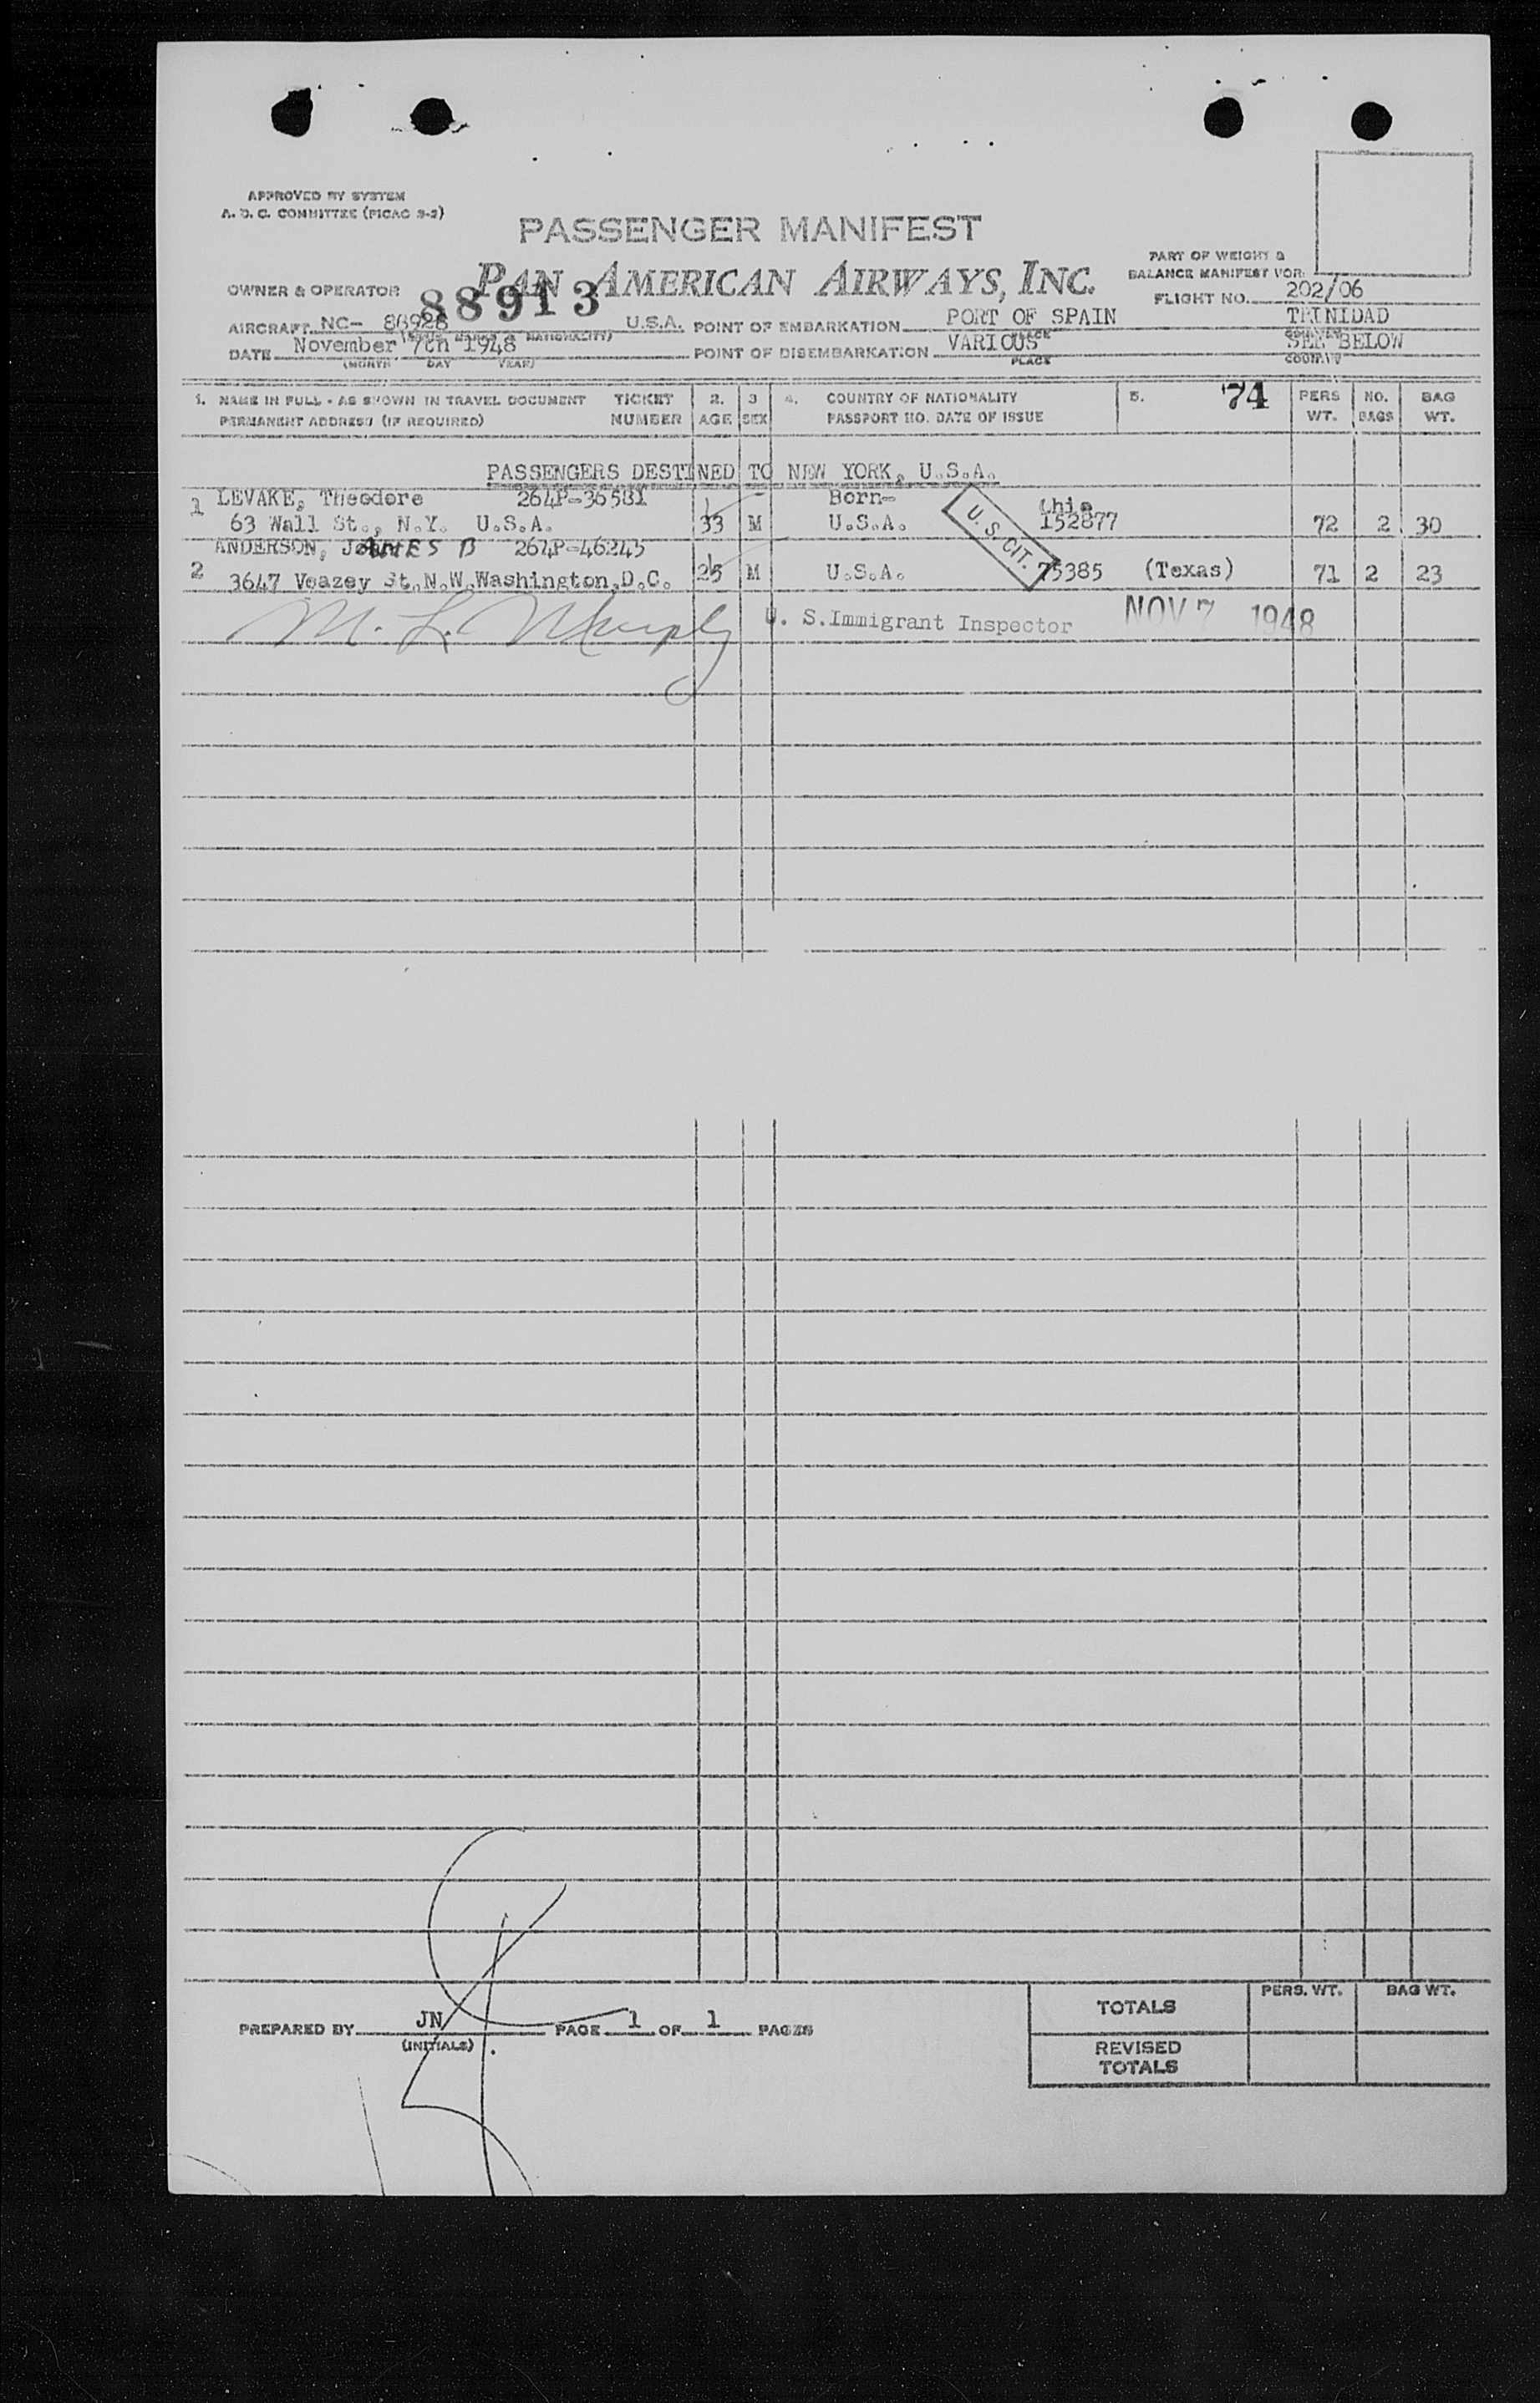 APPROVED BY SYSTEM
A. O. C. COMMITTEE (PICAO 9-2)
PASSENGER MANIFEST
PAN AMERICAN AIRWAYS, INC.
PART OF WEIGHT &
BALANCE MANIFEST FOR
OWNER & OPERATOR
88913
FLIGHT NO. 202/06
AIRCRAFT NC- 88928 U.S.A. POINT OF EMBARKATION PORT OF SPAIN TRINIDAD
PLACE COUNTRY
DATE November 7th 1948 POINT OF DISEMBARKATION VARIOUS SEE BELOW
(MONTH DAY YEAR) PLACE COUNTRY
1. NAME IN FULL - AS SHOWN IN TRAVEL DOCUMENT TICKET 2. 3 4. COUNTRY OF NATIONALITY 5. 74 PERS NO. BAG
PERMANENT ADDRESS (IF REQUIRED) NUMBER AGE SEX PASSPORT NO. DATE OF ISSUE WT. BAGS WT.
PASSENGERS DESTINED TO NEW YORK, U.S.A.
1 LEVAKE, Theodore 264P-36581 Born- Ohio
63 Wall St., N.Y. U.S.A. 33 M U.S.A. 152877 72 2 30
U. S. CIT.
ANDERSON, JAMES B 264P-46245
2 3647 Veazey St.N.W.Washington,D.C. 25 M U.S.A. 75385 (Texas) 71 2 23
M. L. Murphy U. S.Immigrant Inspector NOV 7 1948
TOTALS PERS. WT. BAG WT.
PREPARED BY JN PAGE 1 OF 1 PAGES
(INITIALS)
REVISED
TOTALS